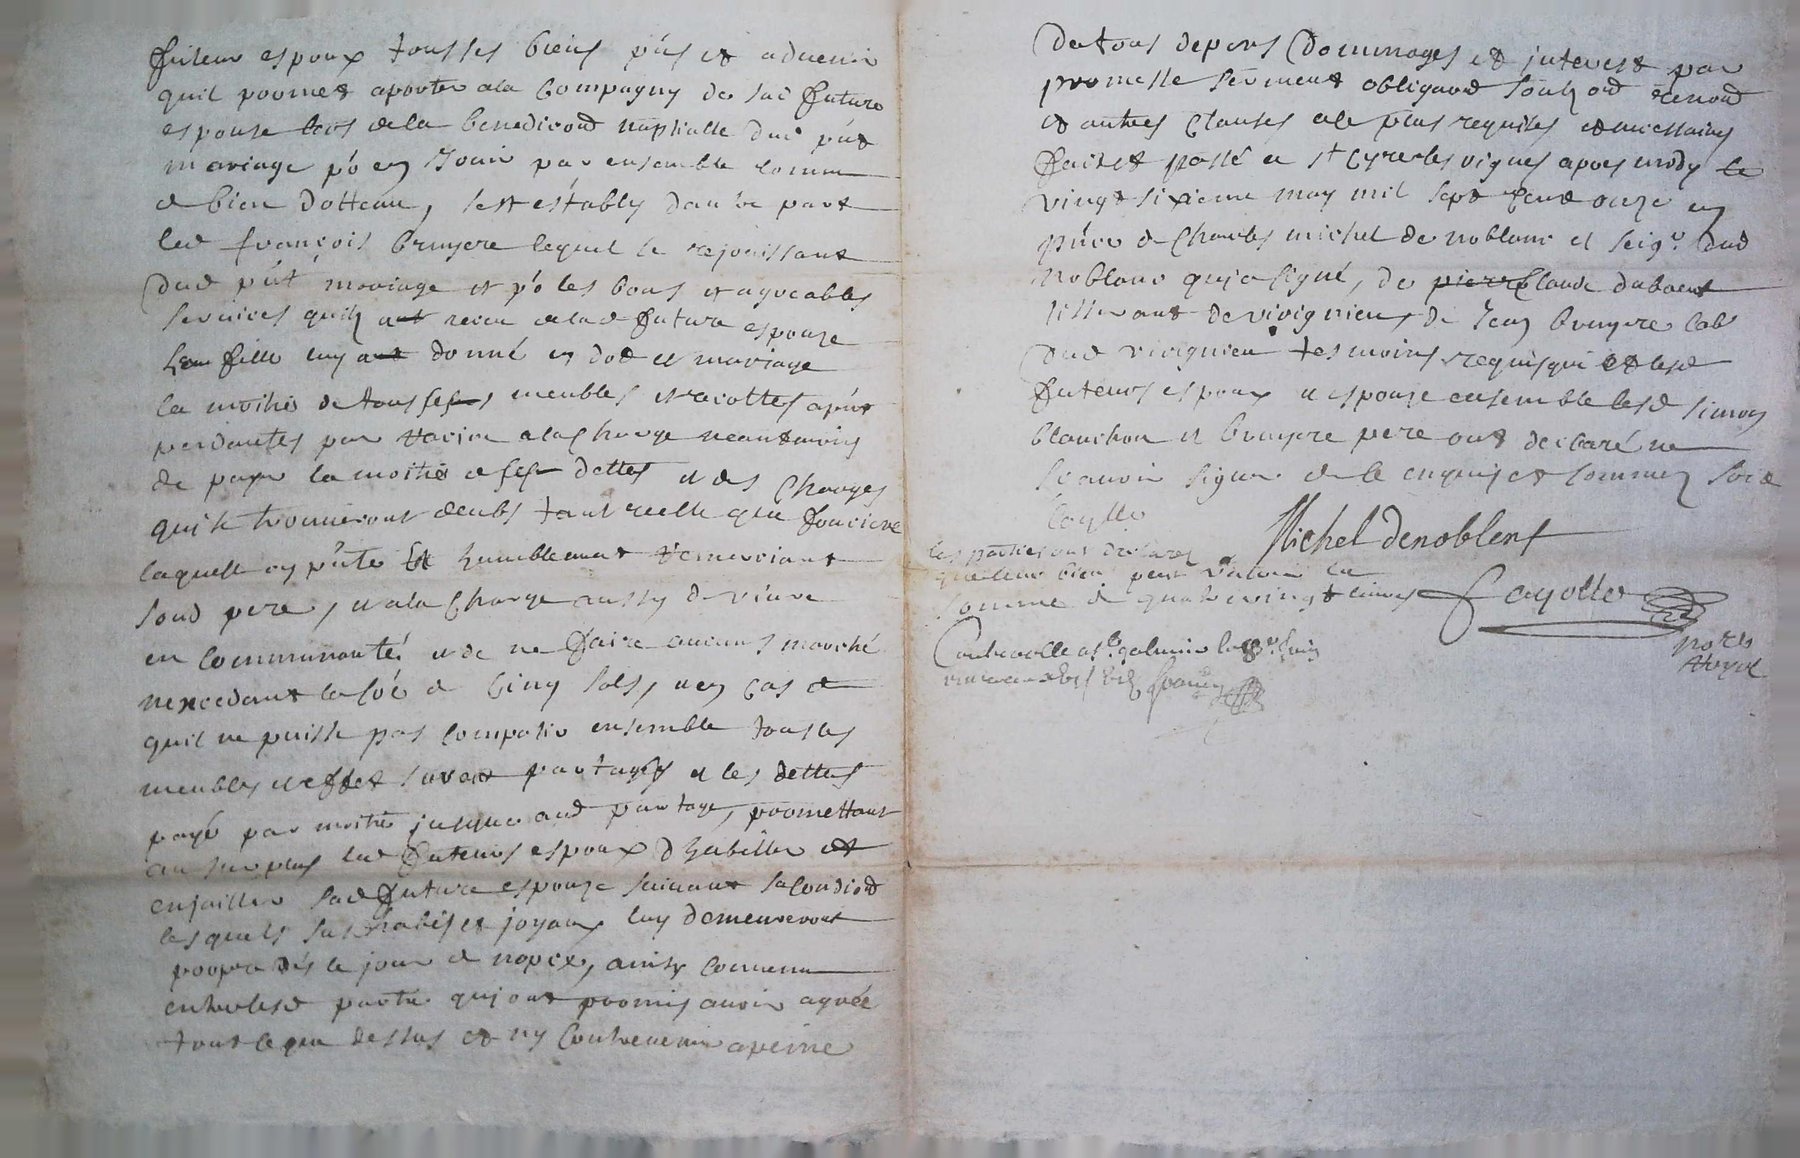 futeur espoux tous ses biens p'ns et aduenir
quil promet aporter a la Compagny de sad future
espouse lors de la benediction nuptialle dud p'nt
mariage po' en Jouir par ensemble comme
de bien dotteaux, sest estably dautre part
led françois bruyere lequel se rejouissant
dud p'nt mariage et po' les bons et agreables
services quil a receu de lad future espouze
sa fille luy a donné en dot et mariage
la moitié de tous ses meubles et recoltes
pendantes par racine a la Charge neantmoins
de payer la moitié de ses dettes et des Charges
qui se trouveront deubs tant reelle que fonciere
laquelle cy p'nte Et humblement remerciant
sond pere, et a la Charge aussy de vivre
en Communauté et de ne faire aucuns marché
nexcedant la so'e de Cinq sols, et en Cas de
quil ne puisse pas Compatir ensemble tous les
meubles et effet seront partagés et les dettes
payé par moitié jusque aud partage, promettant
au surplus led futeurs espoux dhabiller et
enjoailler sad future espouze suivant sa Condiond
lesquels sus habis et joyaux luy demeureront
propre dés le jour de nopce, ainsy Convenu
entre lesd partie qui ont promis avoir agrée
tout ce que dessus et ny Contrevenir a peine
de tous depens Dommages et interest par
promesse serment obligaond soubz ond renond
et autres Clauses de plus requises et necessaires
fait et passé a St Cyre les vignes apres midy le
vingt sixieme may mil sept Cent onze en
p'nce de Charles michel de noblanc et seigr dud
Noblanc qui a signé, de pierre Claude
tisserant de vivignieu, de Jean bruyere lab
dud vivignieu tesmoins requis qui et lesd
futeurs espoux et espouze ensemble lesd simon
blanchon et bruyere pere ont declaré ne
scavoir signer de ce enquis et sommez soisd
Coyllo
Michel denoblent
les parties ont declarez
que leur bien peut valoir la
somme de quatre vingt livres
Coyotte
nore
Royal
Controolle a St galmier le